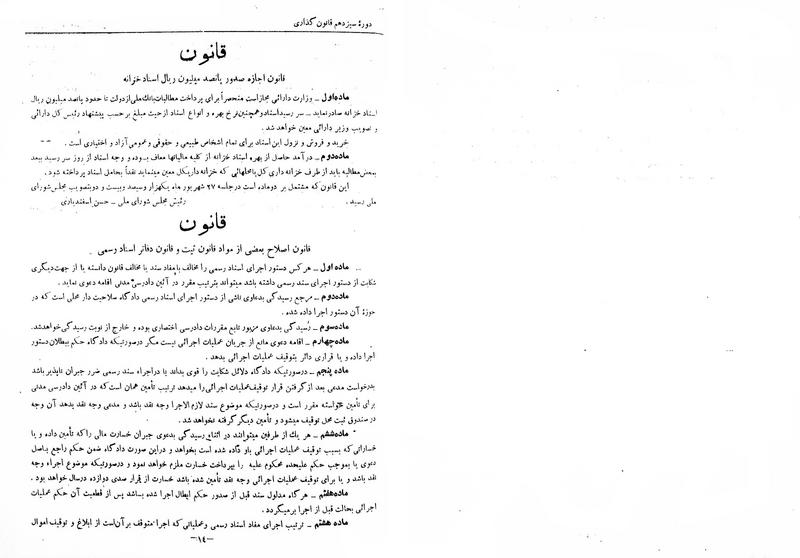 دورهٔ سیزدهم قانون گذاری
قانون
قانون اجازه صدور پانصد میلیون ریال اسناد خزانه
ماده اول ــ وزارت دارائی مجاز است منحصراً برای پرداخت مطالبات بانک ملی از دولت تا حدود پانصد میلیون ریال
اسناد خزانه صادر نماید ــ سر رسید اسناد و همچنین نرخ بهره و انواع اسناد از حیث مبلغ بر حسب پیشنهاد رئیس کل دارائی
و تصویب وزیر دارائی معین خواهد شد .
خرید و فروش و نزول این اسناد برای تمام اشخاص طبیعی و حقوقی و عمومی آزاد و اختیاری است .
ماده دوم ــ در آمد حاصل از بهره اسناد خزانه از کلیه مالیاتها معاف بوده و وجه اسناد از روز سر رسید ببعد
بمحض مطالبه باید از طرف خزانه داری کل یا محلهائی که خزانه داریکل معین مینماید نقداً بحامل اسناد پرداخته شود .
این قانون که مشتمل بر دو ماده است در جلسه ۲۷ شهریور ماه یکهزار و سیصد و بیست و دو بتصویب مجلس شورای
ملی رسید . رئیس مجلس شورای ملی ــ حسن اسفندیاری
قانون
قانون اصلاح بعضی از مواد قانون ثبت و قانون دفاتر اسناد رسمی
ماده اول ــ هر کس دستور اجرای اسناد رسمی را مخالف با مفاد سند یا مخالف قانون دانسته یا از جهت دیگری
شکایت از دستور اجرای سند رسمی داشته باشد میتواند بترتیب مقرر در آئین دادرسی مدنی اقامه دعوی نماید .
ماده دوم ــ مرجع رسیدگی بدعاوی ناشی از دستور اجرای اسناد رسمی دادگاه صلاحیت دار محلی است که در
حوزهٔ آن اجرا داده شده .
ماده سوم ــ رسیدگی بدعاوی مزبور تابع مقررات دادرسی اختصاری بوده و خارج از نوبت رسیدگی خواهد شد.
ماده چهارم ــ اقامه دعوی مانع از جریان عملیات اجرائی نیست مگر در صورتیکه دادگاه حکم ببطلان دستور
اجرا داده و یا قراری دائر بتوقیف عملیات اجرائی بدهد .
ماده پنجم ــ در صورتیکه دادگاه دلائل شکایت را قوی بداند یا در اجراء سند رسمی ضرر جبران ناپذیر باشد
بدرخواست مدعی بعد از گرفتن قرار توقیف عملیات اجرائی را میدهد ترتیب تأمین همان است که در آئین دادرسی مدنی
برای تأمین خواسته مقرر است و در صورتیکه موضوع سند لازم الاجرا وجه نقد باشد و مدعی وجه نقد بدهد آن وجه
در صندوق ثبت محل توقیف میشود و تأمین دیگر گرفته نخواهد شد .
ماده ششم ــ هر یک از طرفین میتوانند در اثنای رسیدگی بدعوی جبران خسارت مالی را که تأمین داده و یا
خساراتی که بسبب توقیف عملیات اجرائی باو داده شده است بخواهد و در این صورت دادگاه ضمن حکم راجع باصل
دعوی یا بموجب حکم علیحده محکوم علیه را بپرداخت خسارت ملزم خواهد نمود و در صورتیکه موضوع اجراء وجه
نقد باشد و یا برای توقیف عملیات اجرائی وجه نقد تأمین شده باشد خسارت از قرار صدی دوازده در سال خواهد بود .
ماده هفتم ــ هر گاه مدلول سند قبل از صدور حکم ابطال اجرا شده باشد پس از قطعیت آن حکم عملیات
اجرائی بحالت قبل از اجرا بر میگردد .
ماده هشتم ــ ترتیب اجرای مفاد اسناد رسمی و عملیاتی که اجرا متوقف بر آن است از ابلاغ و توقیف اموال
ــ۱٤ــ